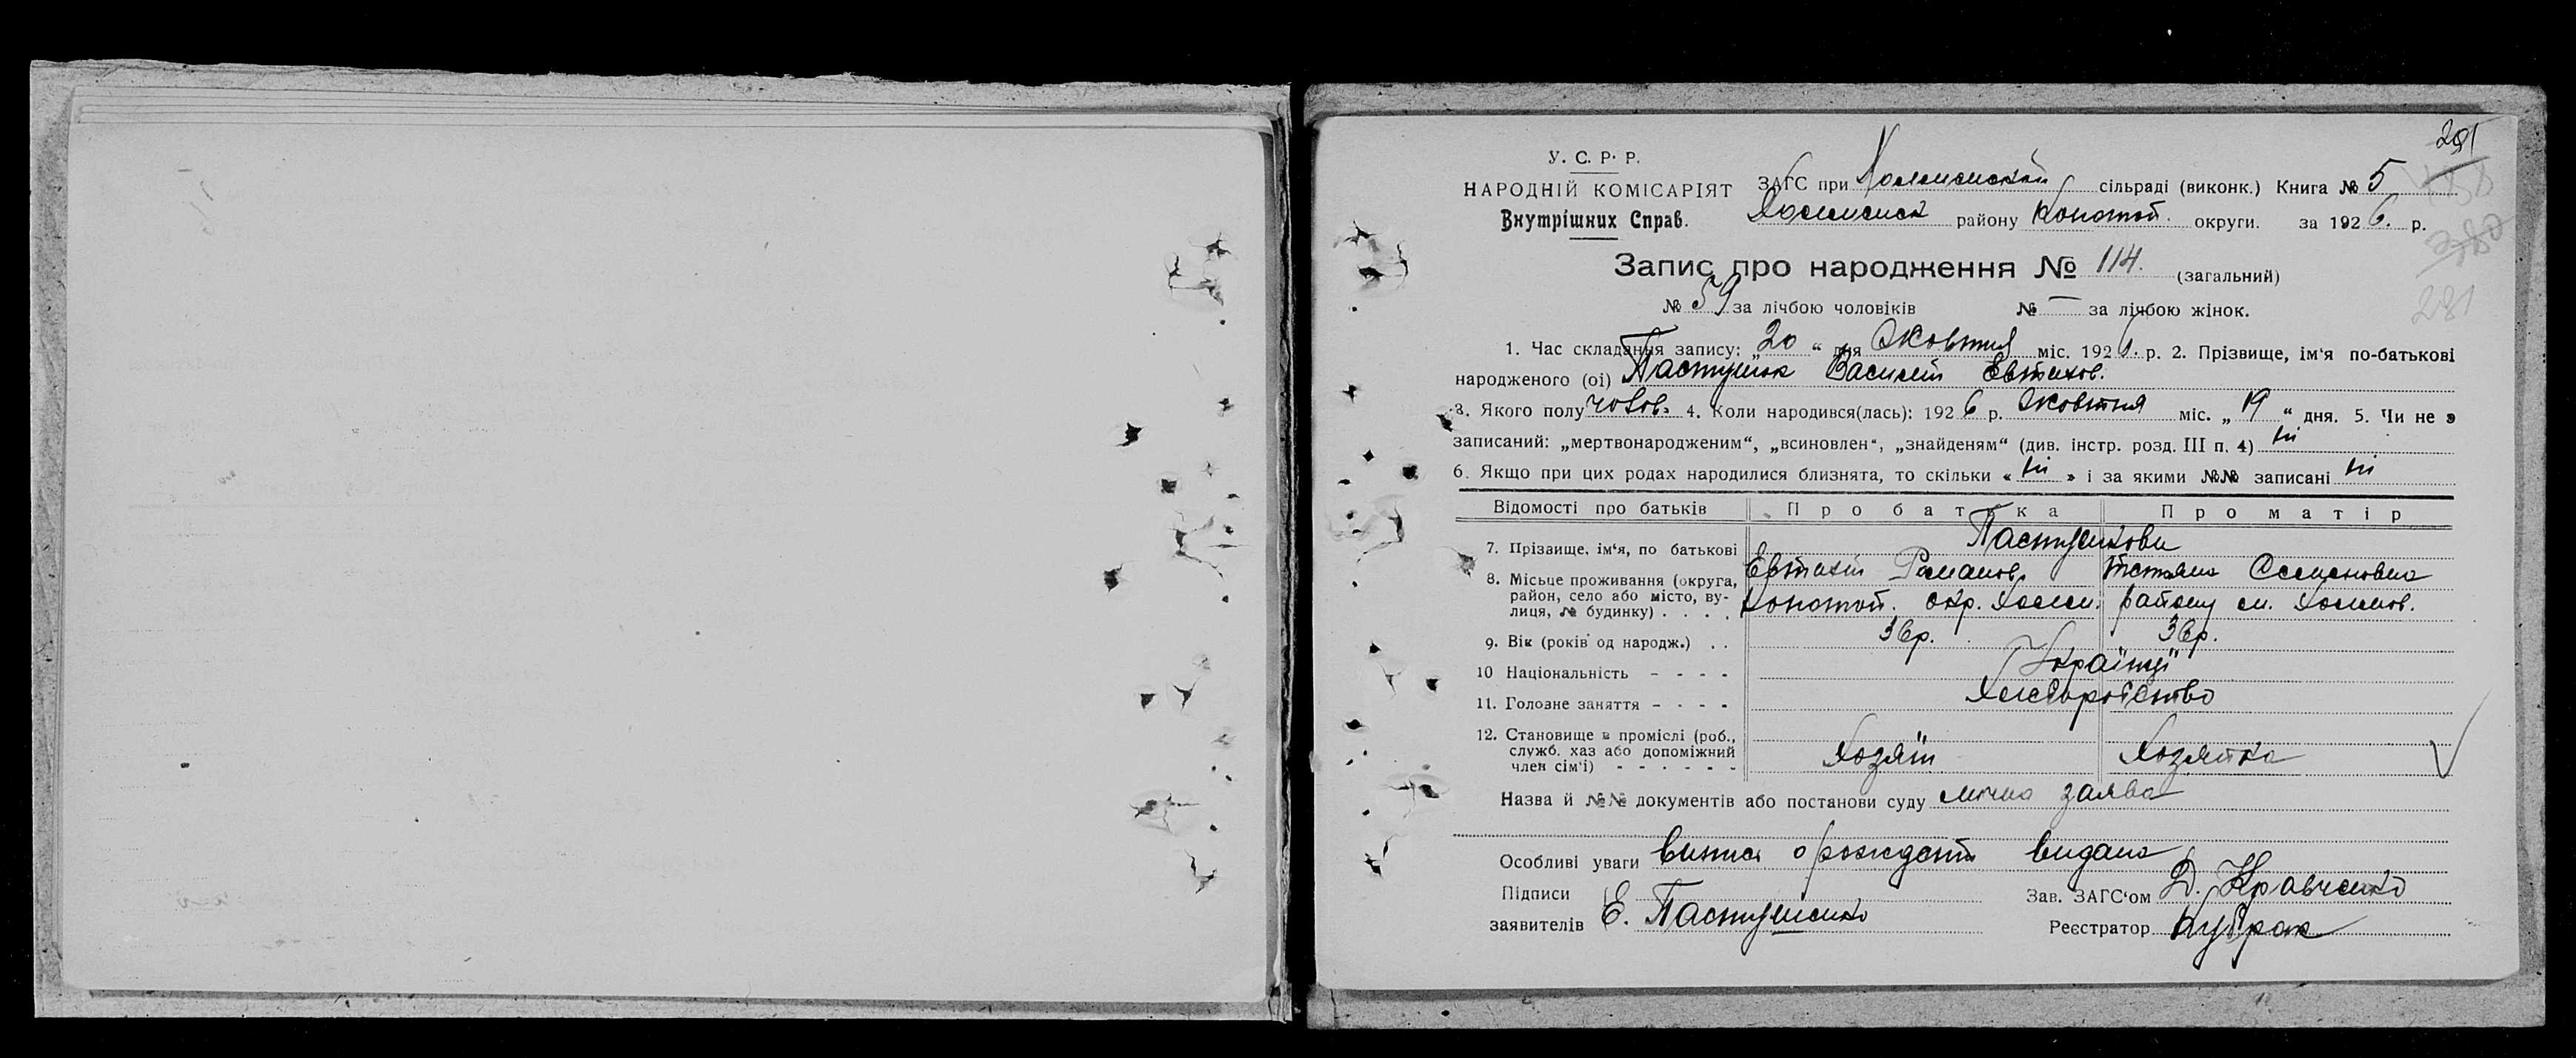 291
У. С. Р. Р.
НАРОДНІЙ КОМІСАРІЯТ
Внутрішних Справ.
ЗАГС при сільраді (виконк.) Книга № 5
району Конотоп. округи. за 1926. р.
281
Запис про народження № 114. (загальний)
№ 59 за лічбою чоловіків № — за лічбою жінок.
1. Час складання запису: „20“ дня Жовтня міс. 1926. р. 2. Прізвище, ім‘я по-батькові
народженого (ої) Пастушок Василий Евтихов.
3. Якого полу чолов. 4. Коли народився(лась): 1926 р. Жовтня міс. „19“ дня. 5. Чи не є
записаний: „мертвонародженим“, „всиновлен“, „знайденям“ (див. інстр. розд. III п. 4) ні
6. Якщо при цих родах народилися близнята, то скільки «ні» і за якими №№ записані ні
Відомості про батьків Про батька Про матір
7. Прізвище, ім‘я, по батькові Пастушкови
Евтихий Романов. Тетяна Семеновна
8. Місьце проживання (округа, район, село або місто, вулиця, № будинку) . . . . Конотоп. окр. Холм. району м. Холмов.
9. Вік (років од народж.) . . 36р. 36р.
10 Національність - - - - Українці
11. Головне заняття - - - - Хліборобство
12. Становище в промислі (роб., служб. хаз або допоміжний член сім‘ї) - - - - - - Хозяїн Хозяйка
Назва й №№ документів або постанови суду лична заява
Особливі уваги випис о рождении видана
Підписи заявителів Е. Пастушенко
Зав. ЗАГС‘ом Д. Кравченко
Реєстратор